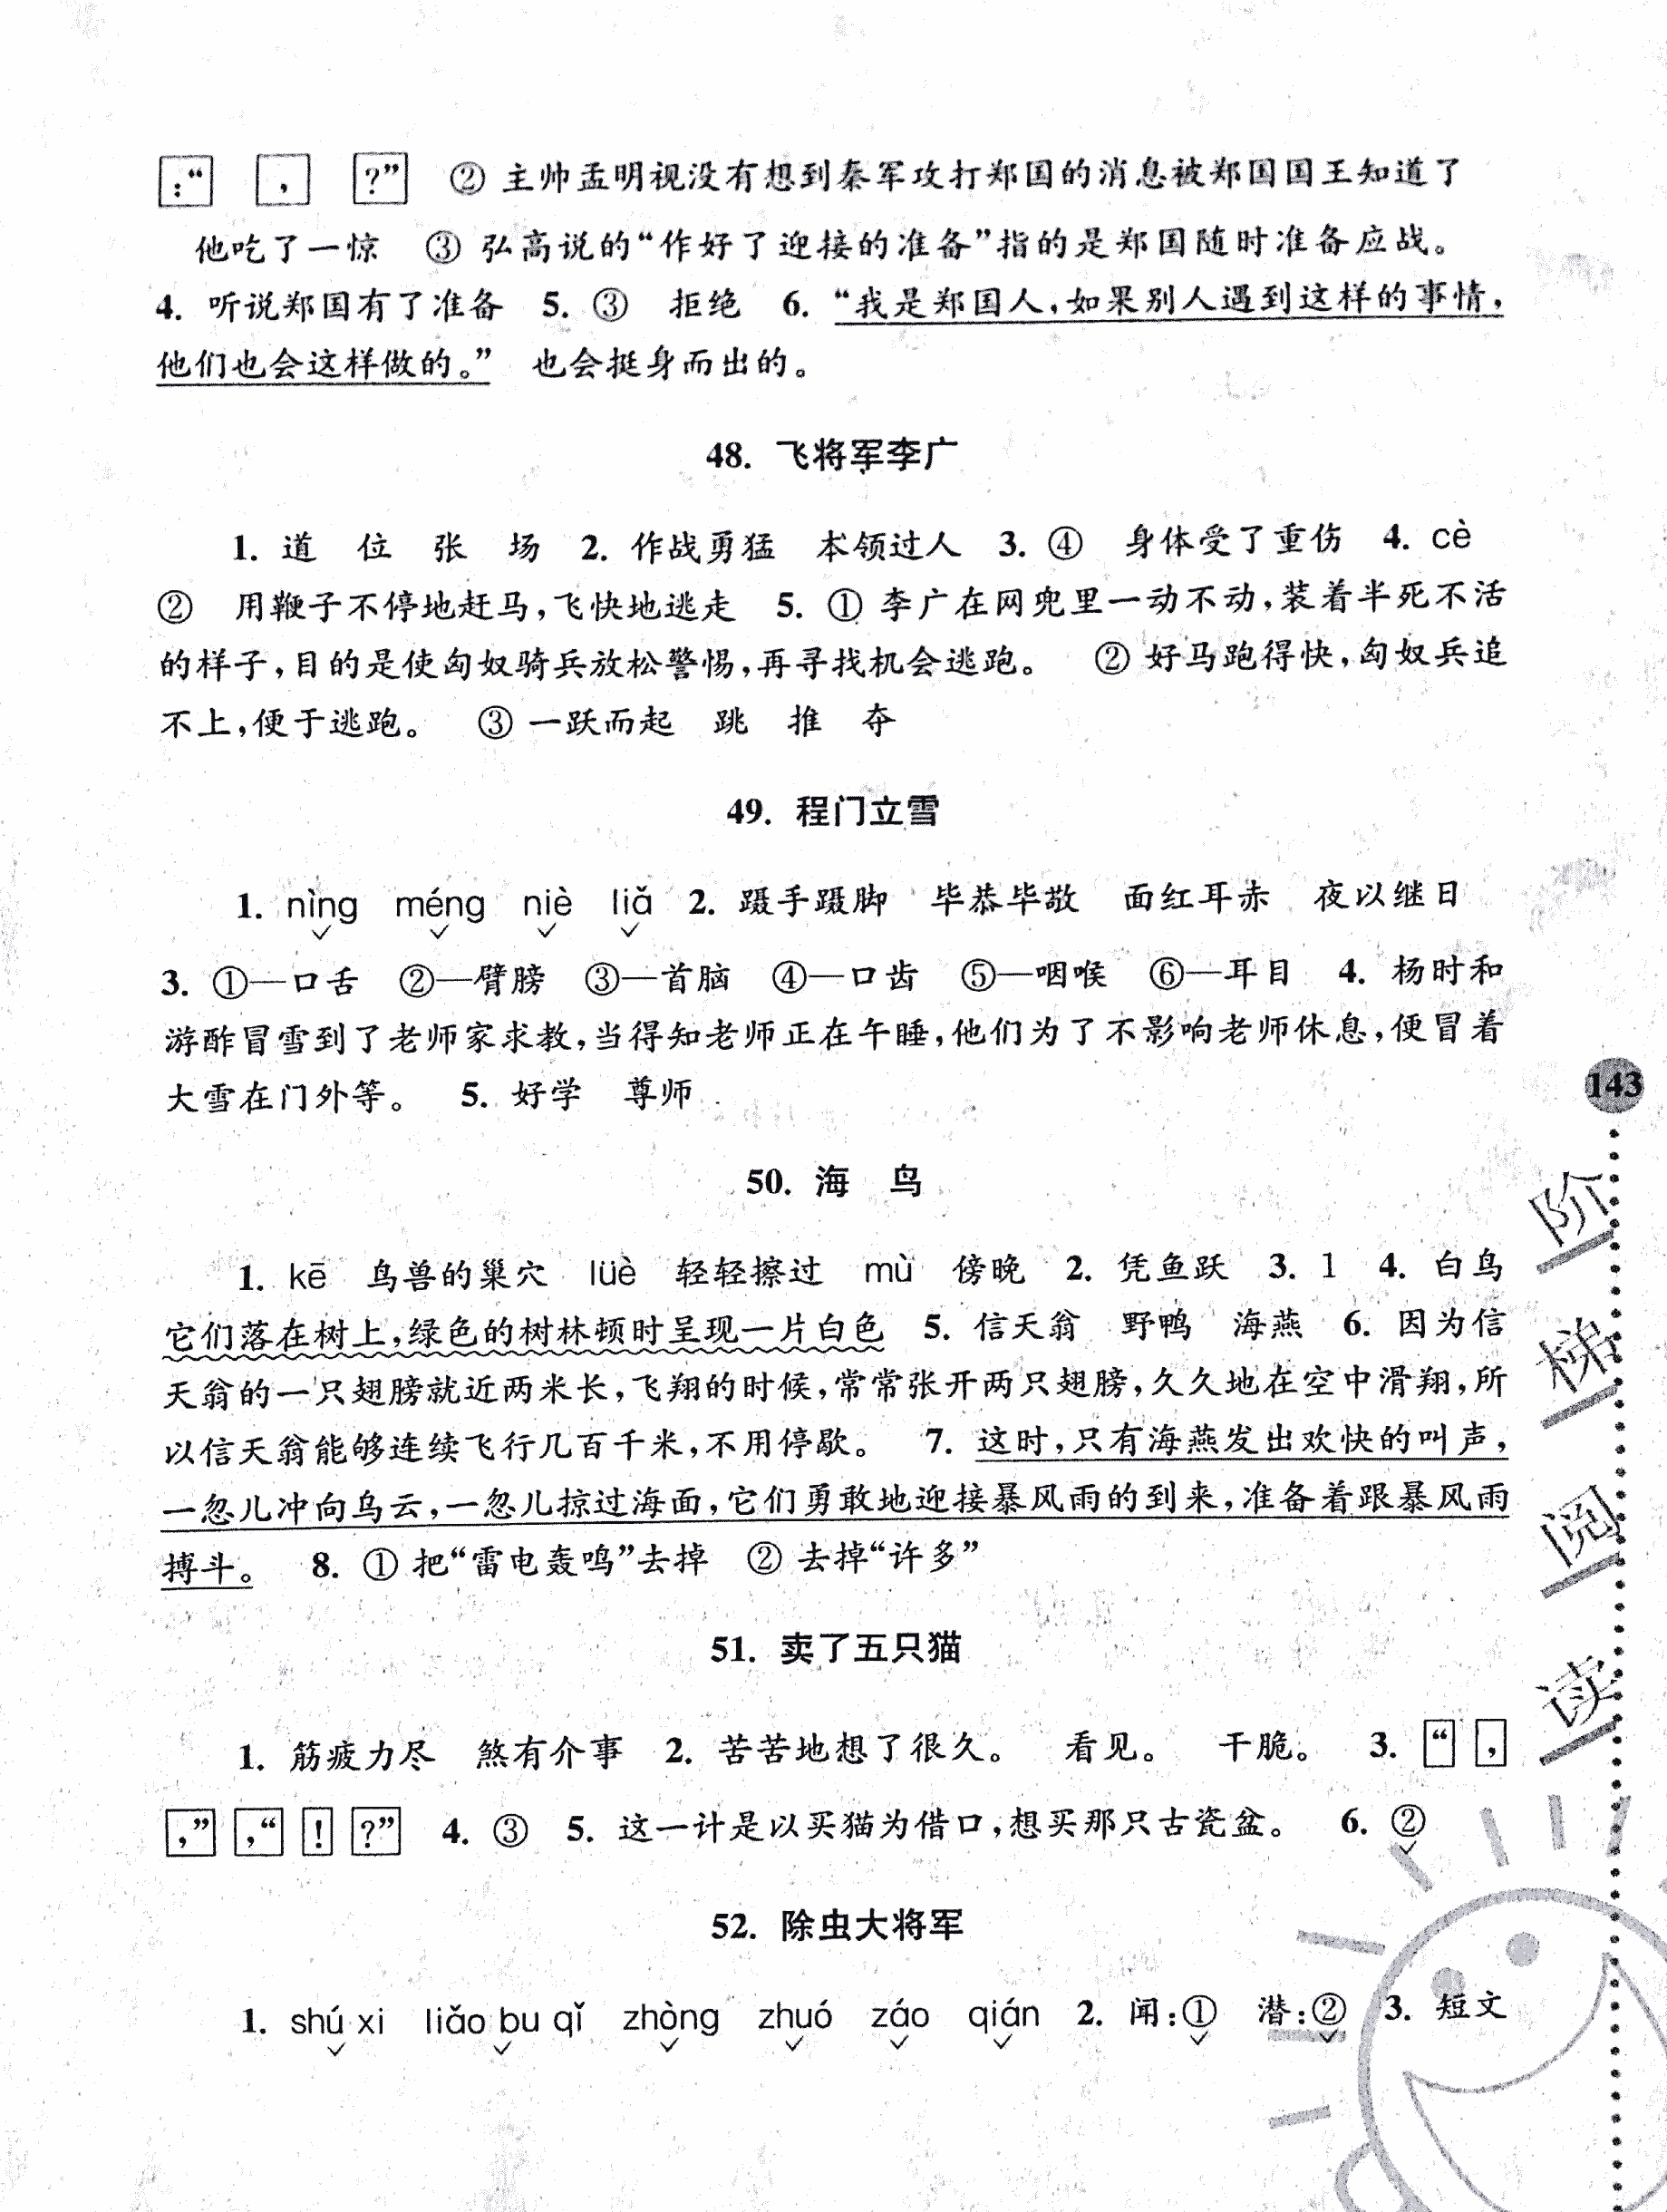 :“ , ?” ② 主帅孟明视没有想到秦军攻打郑国的消息被郑国国王知道了
他吃了一惊 ③ 弘高说的“作好了迎接的准备”指的是郑国随时准备应战。
4. 听说郑国有了准备 5. ③ 拒绝 6. “我是郑国人,如果别人遇到这样的事情,
他们也会这样做的。” 也会挺身而出的。
48. 飞将军李广
1. 道 位 张 场 2. 作战勇猛 本领过人 3. ④ 身体受了重伤 4. cè
② 用鞭子不停地赶马,飞快地逃走 5. ① 李广在网兜里一动不动,装着半死不活
的样子,目的是使匈奴骑兵放松警惕,再寻找机会逃跑。 ② 好马跑得快,匈奴兵追
不上,便于逃跑。 ③ 一跃而起 跳 推 夺
49. 程门立雪
1. nìng méng niè liǎ 2. 蹑手蹑脚 毕恭毕敬 面红耳赤 夜以继日
3. ①—口舌 ②—臂膀 ③—首脑 ④—口齿 ⑤—咽喉 ⑥—耳目 4. 杨时和
游酢冒雪到了老师家求教,当得知老师正在午睡,他们为了不影响老师休息,便冒着
大雪在门外等。 5. 好学 尊师
143
50. 海 鸟
1. kē 鸟兽的巢穴 lüè 轻轻擦过 mù 傍晚 2. 凭鱼跃 3. 1 4. 白鸟
它们落在树上,绿色的树林顿时呈现一片白色 5. 信天翁 野鸭 海燕 6. 因为信
天翁的一只翅膀就近两米长,飞翔的时候,常常张开两只翅膀,久久地在空中滑翔,所
以信天翁能够连续飞行几百千米,不用停歇。 7. 这时,只有海燕发出欢快的叫声,
一忽儿冲向乌云,一忽儿掠过海面,它们勇敢地迎接暴风雨的到来,准备着跟暴风雨
搏斗。 8. ① 把“雷电轰鸣”去掉 ② 去掉“许多”
阶梯阅读
51. 卖了五只猫
1. 筋疲力尽 煞有介事 2. 苦苦地想了很久。 看见。 干脆。 3. “ ,
,” ,“ ! ?” 4. ③ 5. 这一计是以买猫为借口,想买那只古瓷盆。 6. ②
52. 除虫大将军
1. shú xi liǎo bu qǐ zhòng zhuó záo qián 2. 闻:① 潜:② 3. 短文